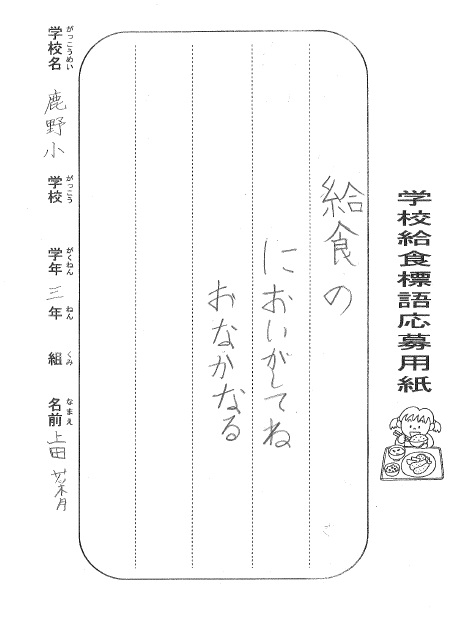 学校給食標語応募用紙
給食の
においがしてね
おなかなる
がっこうめい がっこう がくねん ねん くみ なまえ
学校名 鹿野小 学校 学年 三 年 組 名前 上田 菜月